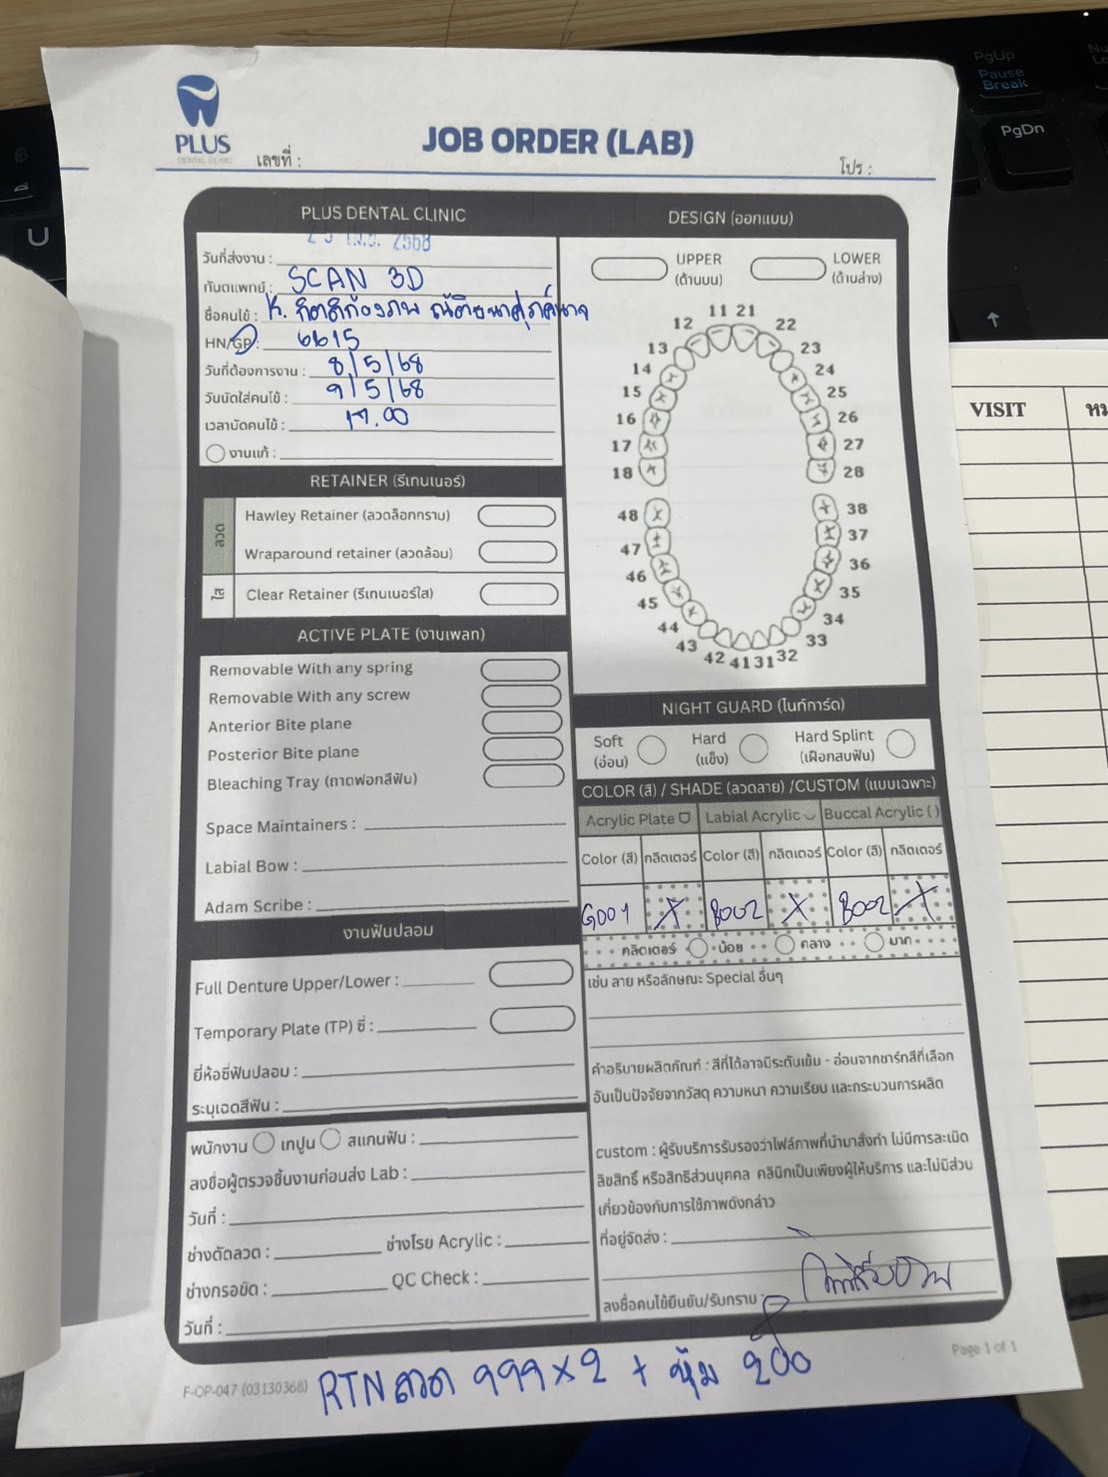 PLUS
DENTAL CLINIC
JOB ORDER (LAB)
เลขที่ :
โปร :
PLUS DENTAL CLINIC
2568
วันที่ส่งงาน :
ทันตแพทย์ : SCAN 3D
ชื่อคนไข้ : K.
HN/GP : 6615
วันที่ต้องการงาน : 8/5/68
วันนัดใส่คนไข้ : 9/5/68
เวลานัดคนไข้ : 17.00
งานแก้ :
RETAINER (รีเทนเนอร์)
ลวด
Hawley Retainer (ลวดล็อกกราม)
Wraparound retainer (ลวดล้อม)
ใส
Clear Retainer (รีเทนเนอร์ใส)
ACTIVE PLATE (งานเพลท)
Removable With any spring
Removable With any screw
Anterior Bite plane
Posterior Bite plane
Bleaching Tray (ถาดฟอกสีฟัน)
Space Maintainers :
Labial Bow :
Adam Scribe :
งานฟันปลอม
Full Denture Upper/Lower :
Temporary Plate (TP) ซี่ :
ยี่ห้อซี่ฟันปลอม :
ระบุเฉดสีฟัน :
พนักงาน เทปูน สแกนฟัน :
ลงชื่อผู้ตรวจชิ้นงานก่อนส่ง Lab :
วันที่ :
ช่างดัดลวด : ช่างโรย Acrylic :
ช่างกรอขัด : QC Check :
วันที่ :
DESIGN (ออกแบบ)
UPPER LOWER
(ด้านบน) (ด้านล่าง)
11 21
12 22
13 23
14 24
15 25
16 26
17 27
18 28
48 38
47 37
46 36
45 35
44 34
43 33
42 41 31 32
NIGHT GUARD (ไนท์การ์ด)
Soft Hard Hard Splint
(อ่อน) (แข็ง) (เฝือกสบฟัน)
COLOR (สี) / SHADE (ลวดลาย) /CUSTOM (แบบเฉพาะ)
Acrylic Plate Labial Acrylic Buccal Acrylic ( )
Color (สี) กลิตเตอร์ Color (สี) กลิตเตอร์ Color (สี) กลิตเตอร์
G001 X B002 X B002 X
กลิตเตอร์ น้อย กลาง มาก
เช่น ลาย หรือลักษณะ Special อื่นๆ
คำอธิบายผลิตภัณฑ์ : สีที่ได้อาจมีระดับเข้ม - อ่อนจากชาร์ทสีที่เลือก
อันเป็นปัจจัยจากวัสดุ ความหนา ความเรียบ และกระบวนการผลิต
custom : ผู้รับบริการรับรองว่าไฟล์ภาพที่นำมาสั่งทำ ไม่มีการละเมิด
ลิขสิทธิ์ หรือสิทธิส่วนบุคคล คลินิกเป็นเพียงผู้ให้บริการ และไม่มีส่วน
เกี่ยวข้องกับการใช้ภาพดังกล่าว
ที่อยู่จัดส่ง :
ลงชื่อคนไข้ยืนยัน/รับทราบ :
Page 1 of 1
F-OP-047 (03130368)
RTN ลวด 999 x 2 + หุ้ม 200
VISIT
PgUp
Pause
Break
PgDn
U